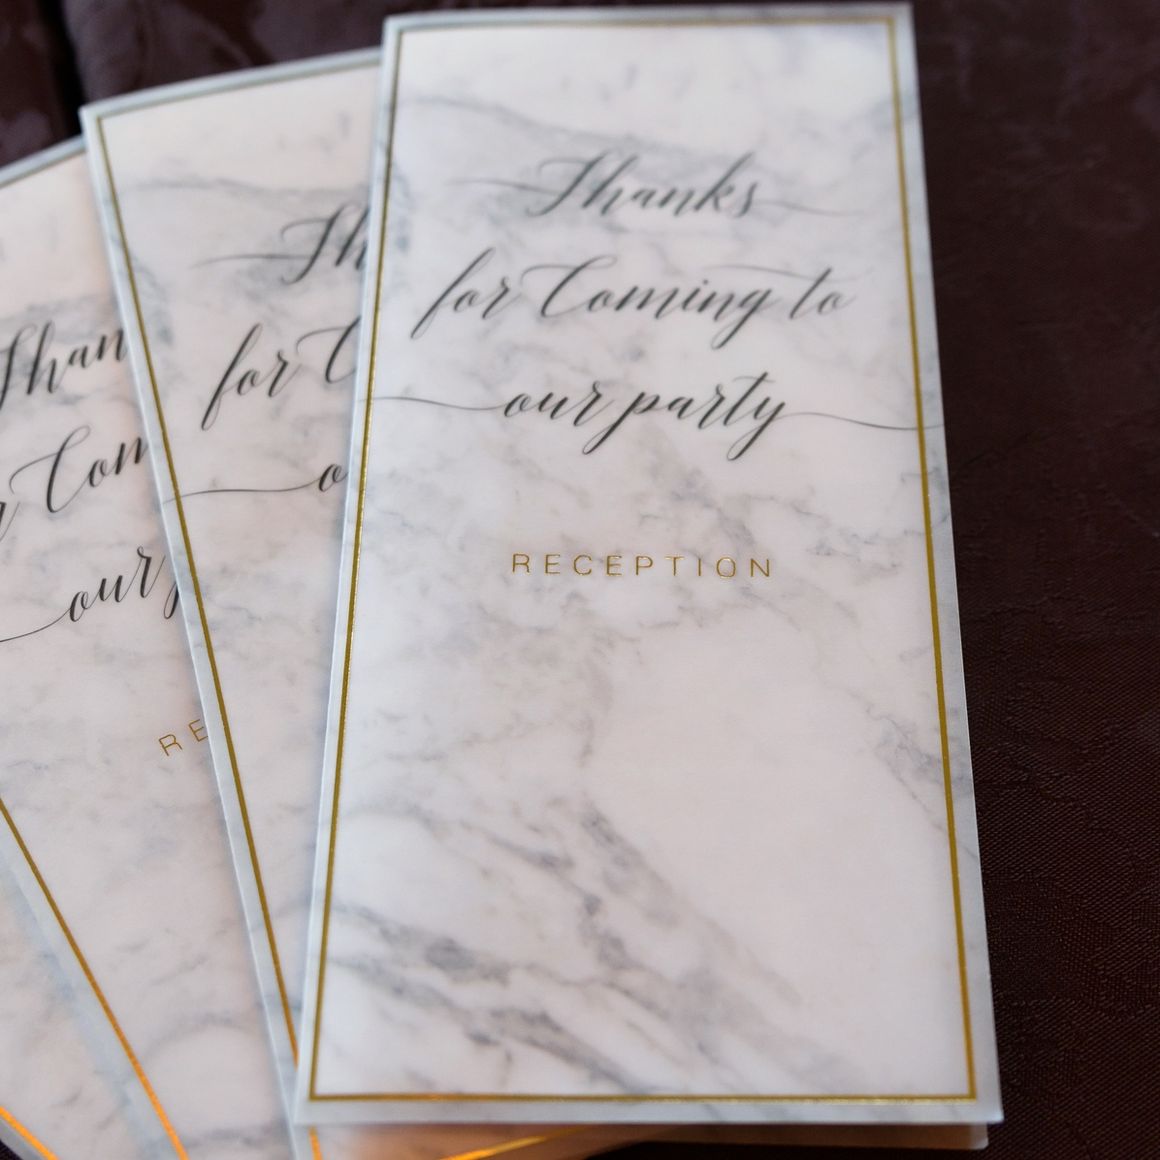 Thanks
for Coming to
our party
RECEPTION
Th
for C
o
Than
r Com
our p
RE